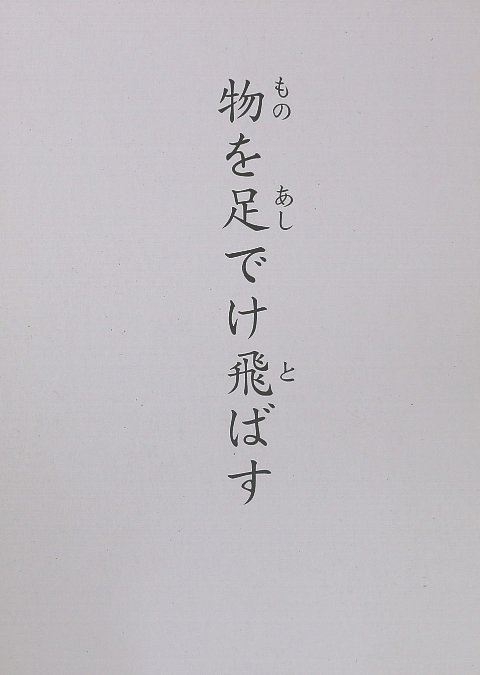 物を足でけ飛ばす
もの
あし
と